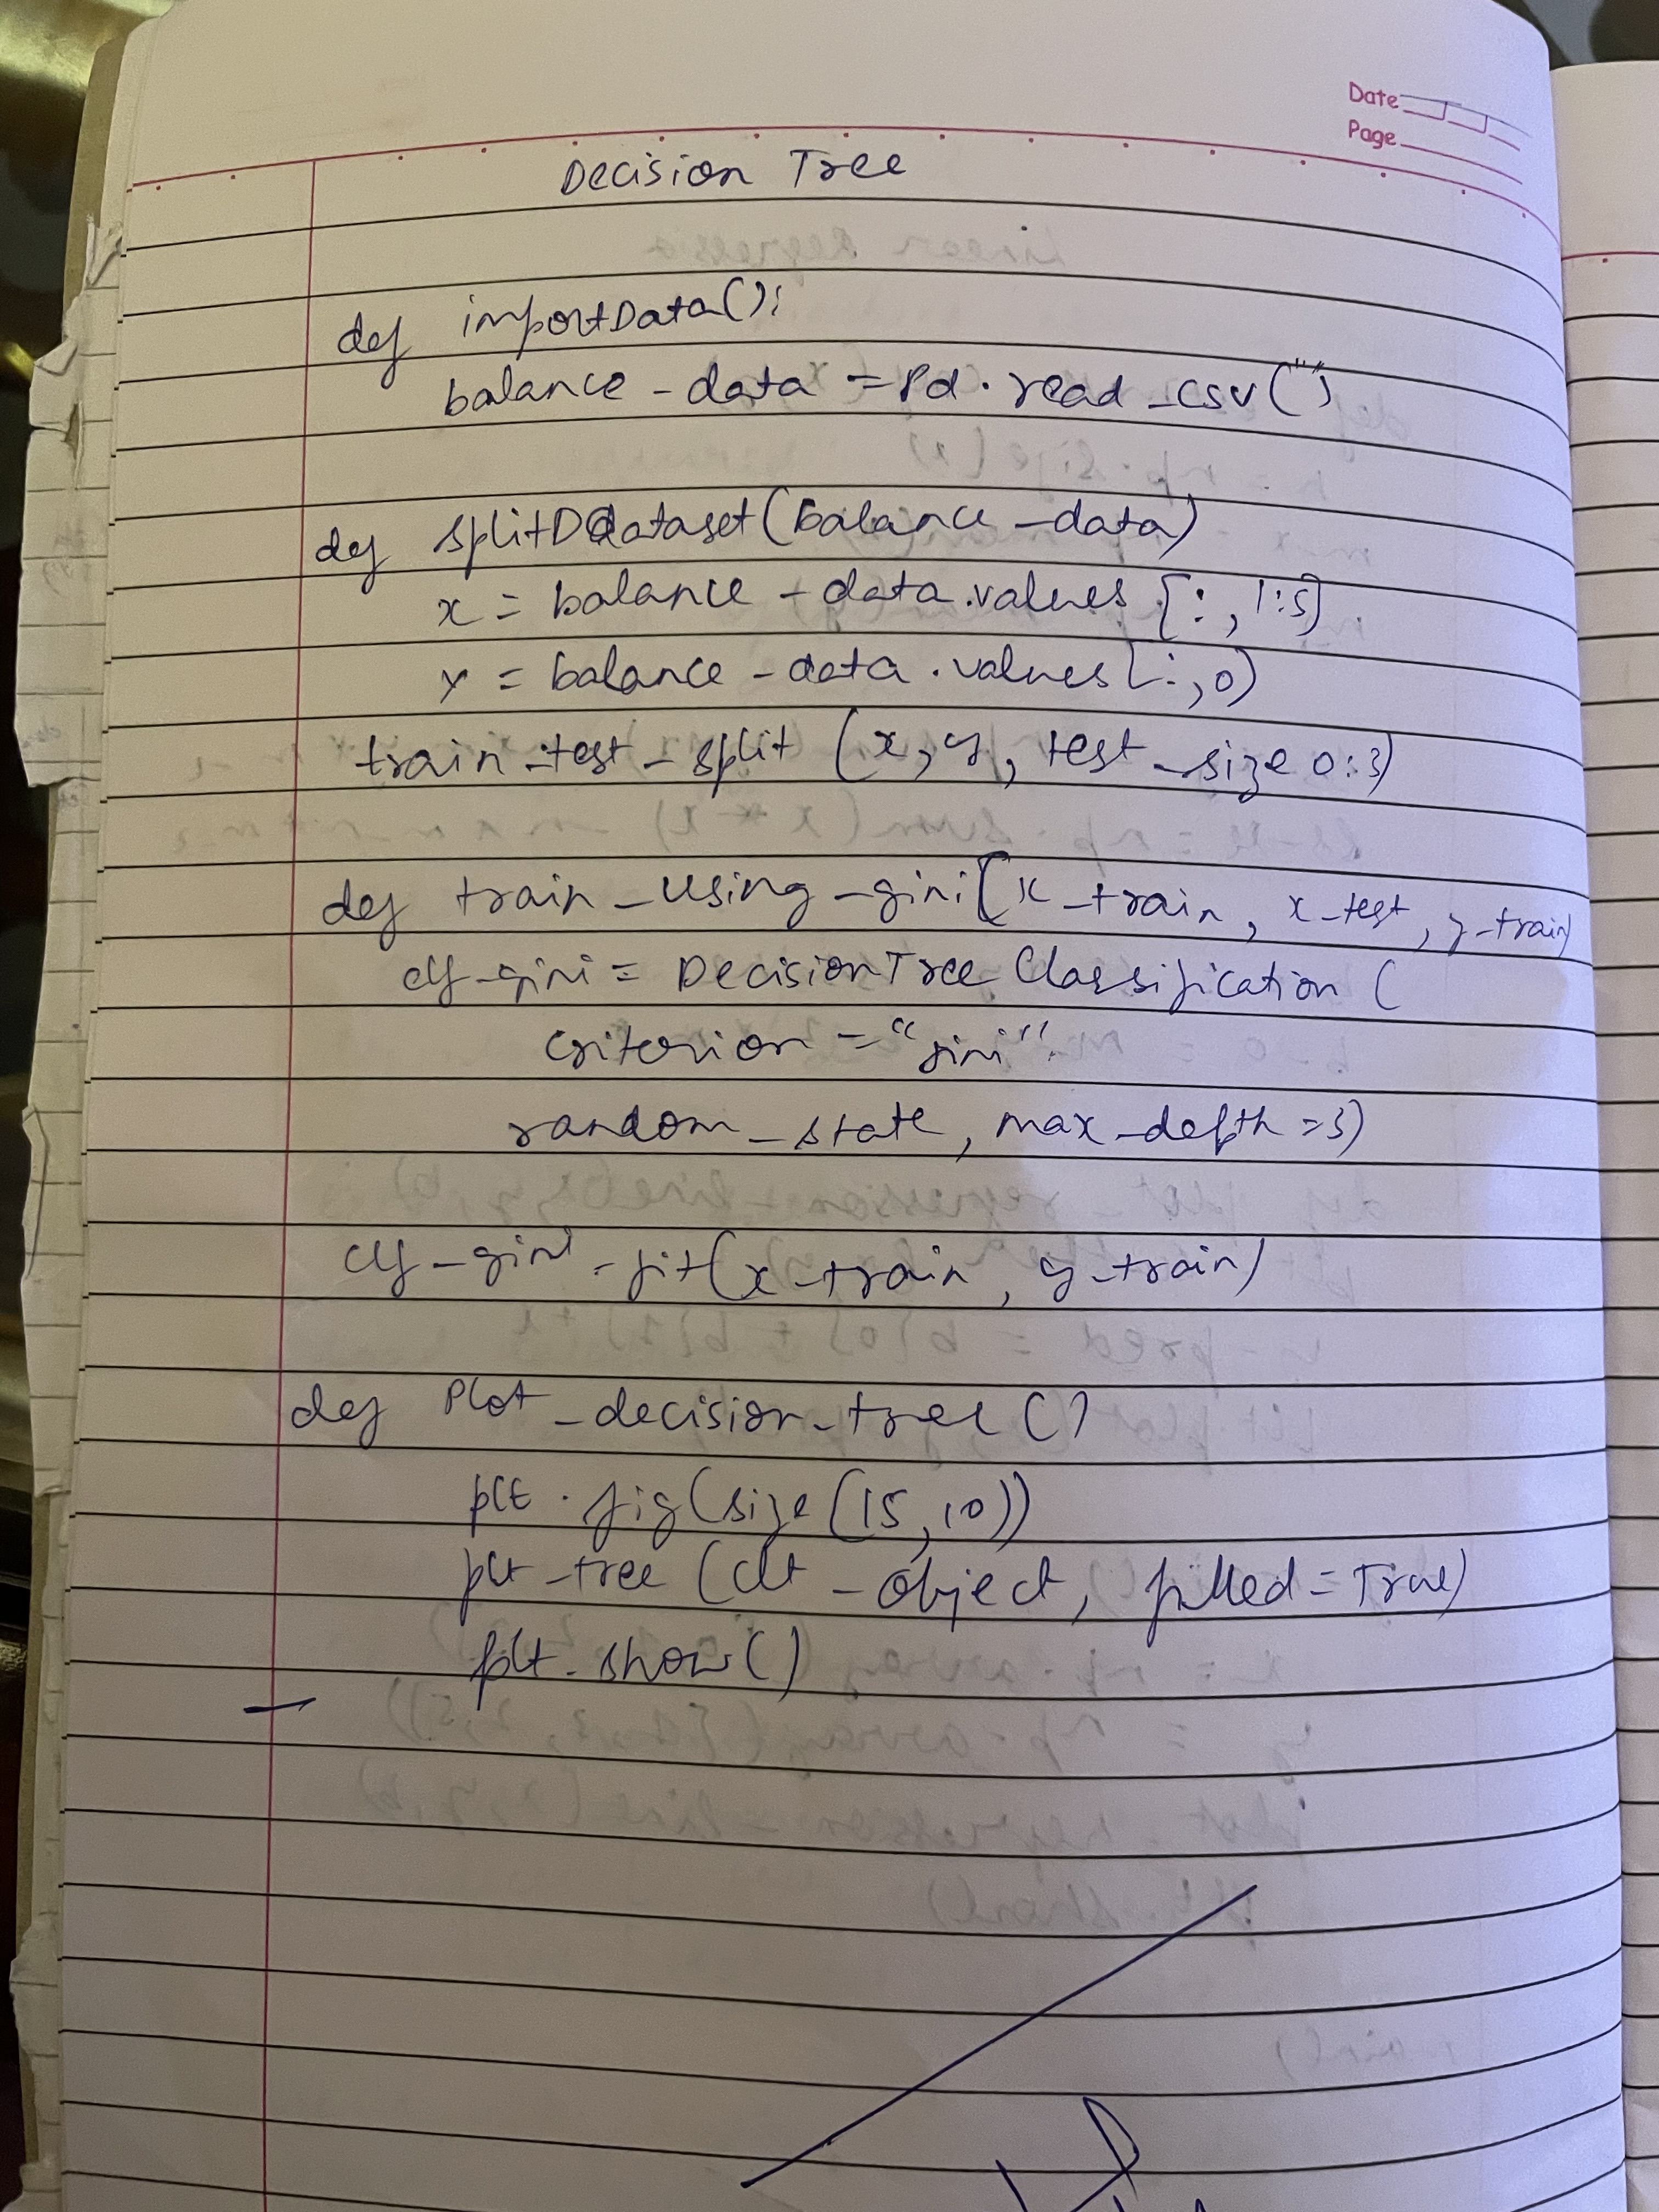 Date
Page
Decision Tree
def importData():
balance - data = Pd. read _csv("")
def splitDdataset(balance - data)
x = balance - data.values [:, 1:5]
y = balance - data.values[:,0)
train _test _ split (x, y, test _size 0:3)
def train _ using - gini(x _train, x_test, y_train)
clf-gini = DecisionTree Classification (
criterion = "gini"
random _ state, max _depth = 3)
clf - gini . fit(x _train, y _train)
def Plot _ decision _ tree ()
plt . fig(size (15,10))
plt _tree (clt - object, filled = True)
plt. show()